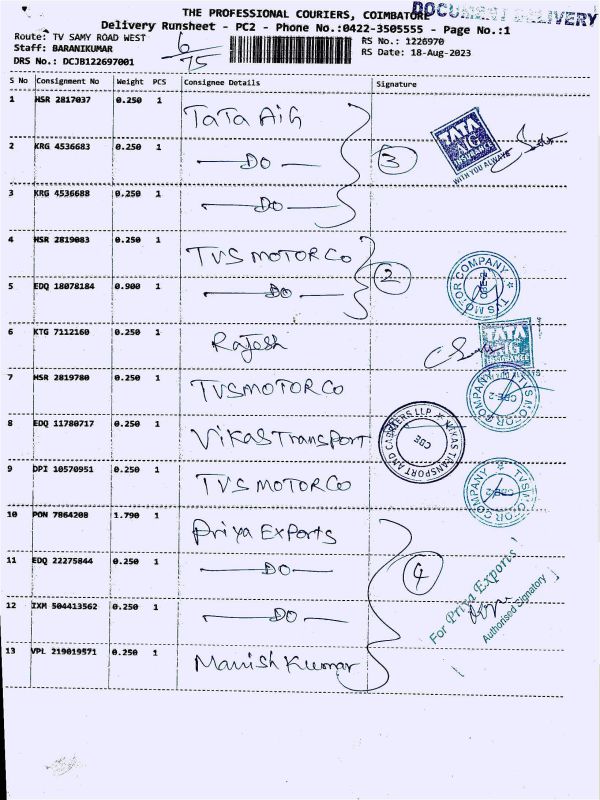 THE PROFESSIONAL COURIERS, COIMBATORE
DOCUMENT DELIVERY
Delivery Runsheet - PC2 - Phone No.:0422-3505555 - Page No.:1
Route: TV SAMY ROAD WEST
Staff: BARANIKUMAR
DRS No.: DCJB122697001
6/75
RS No.: 1226970
RS Date: 18-Aug-2023
S No Consignment No Weight PCS Consignee Details Signature
1 HSR 2817037 0.250 1 TATA AIG
2 KRG 4536683 0.250 1 — DO —
3 KRG 4536688 0.250 1 — DO —
3
TATA AIG INSURANCE
WITH YOU ALWAYS
4 HSR 2819083 0.250 1 TVS MOTOR CO
5 EDQ 18078184 0.900 1 — DO —
2
TVS MOTOR COMPANY CBE-2
6 KTG 7112160 0.250 1 Rajesh
TATA AIG INSURANCE
7 HSR 2819780 0.250 1 TVS MOTOR CO
TVS MOTOR COMPANY CBE-2
8 EDQ 11780717 0.250 1 Vikas Transport
VIKAS TRANSPORT AND CARRIERS LLP CBE
9 DPI 10570951 0.250 1 TVS MOTOR CO
TVS MOTOR COMPANY CBE-2
10 PON 7864208 1.790 1 Priya Exports
11 EDQ 22275844 0.250 1 — DO —
12 IXM 504413562 0.250 1 — DO —
13 VPL 219019571 0.250 1 Manish Kumar
4
For Priya Exports
Authorised Signatory